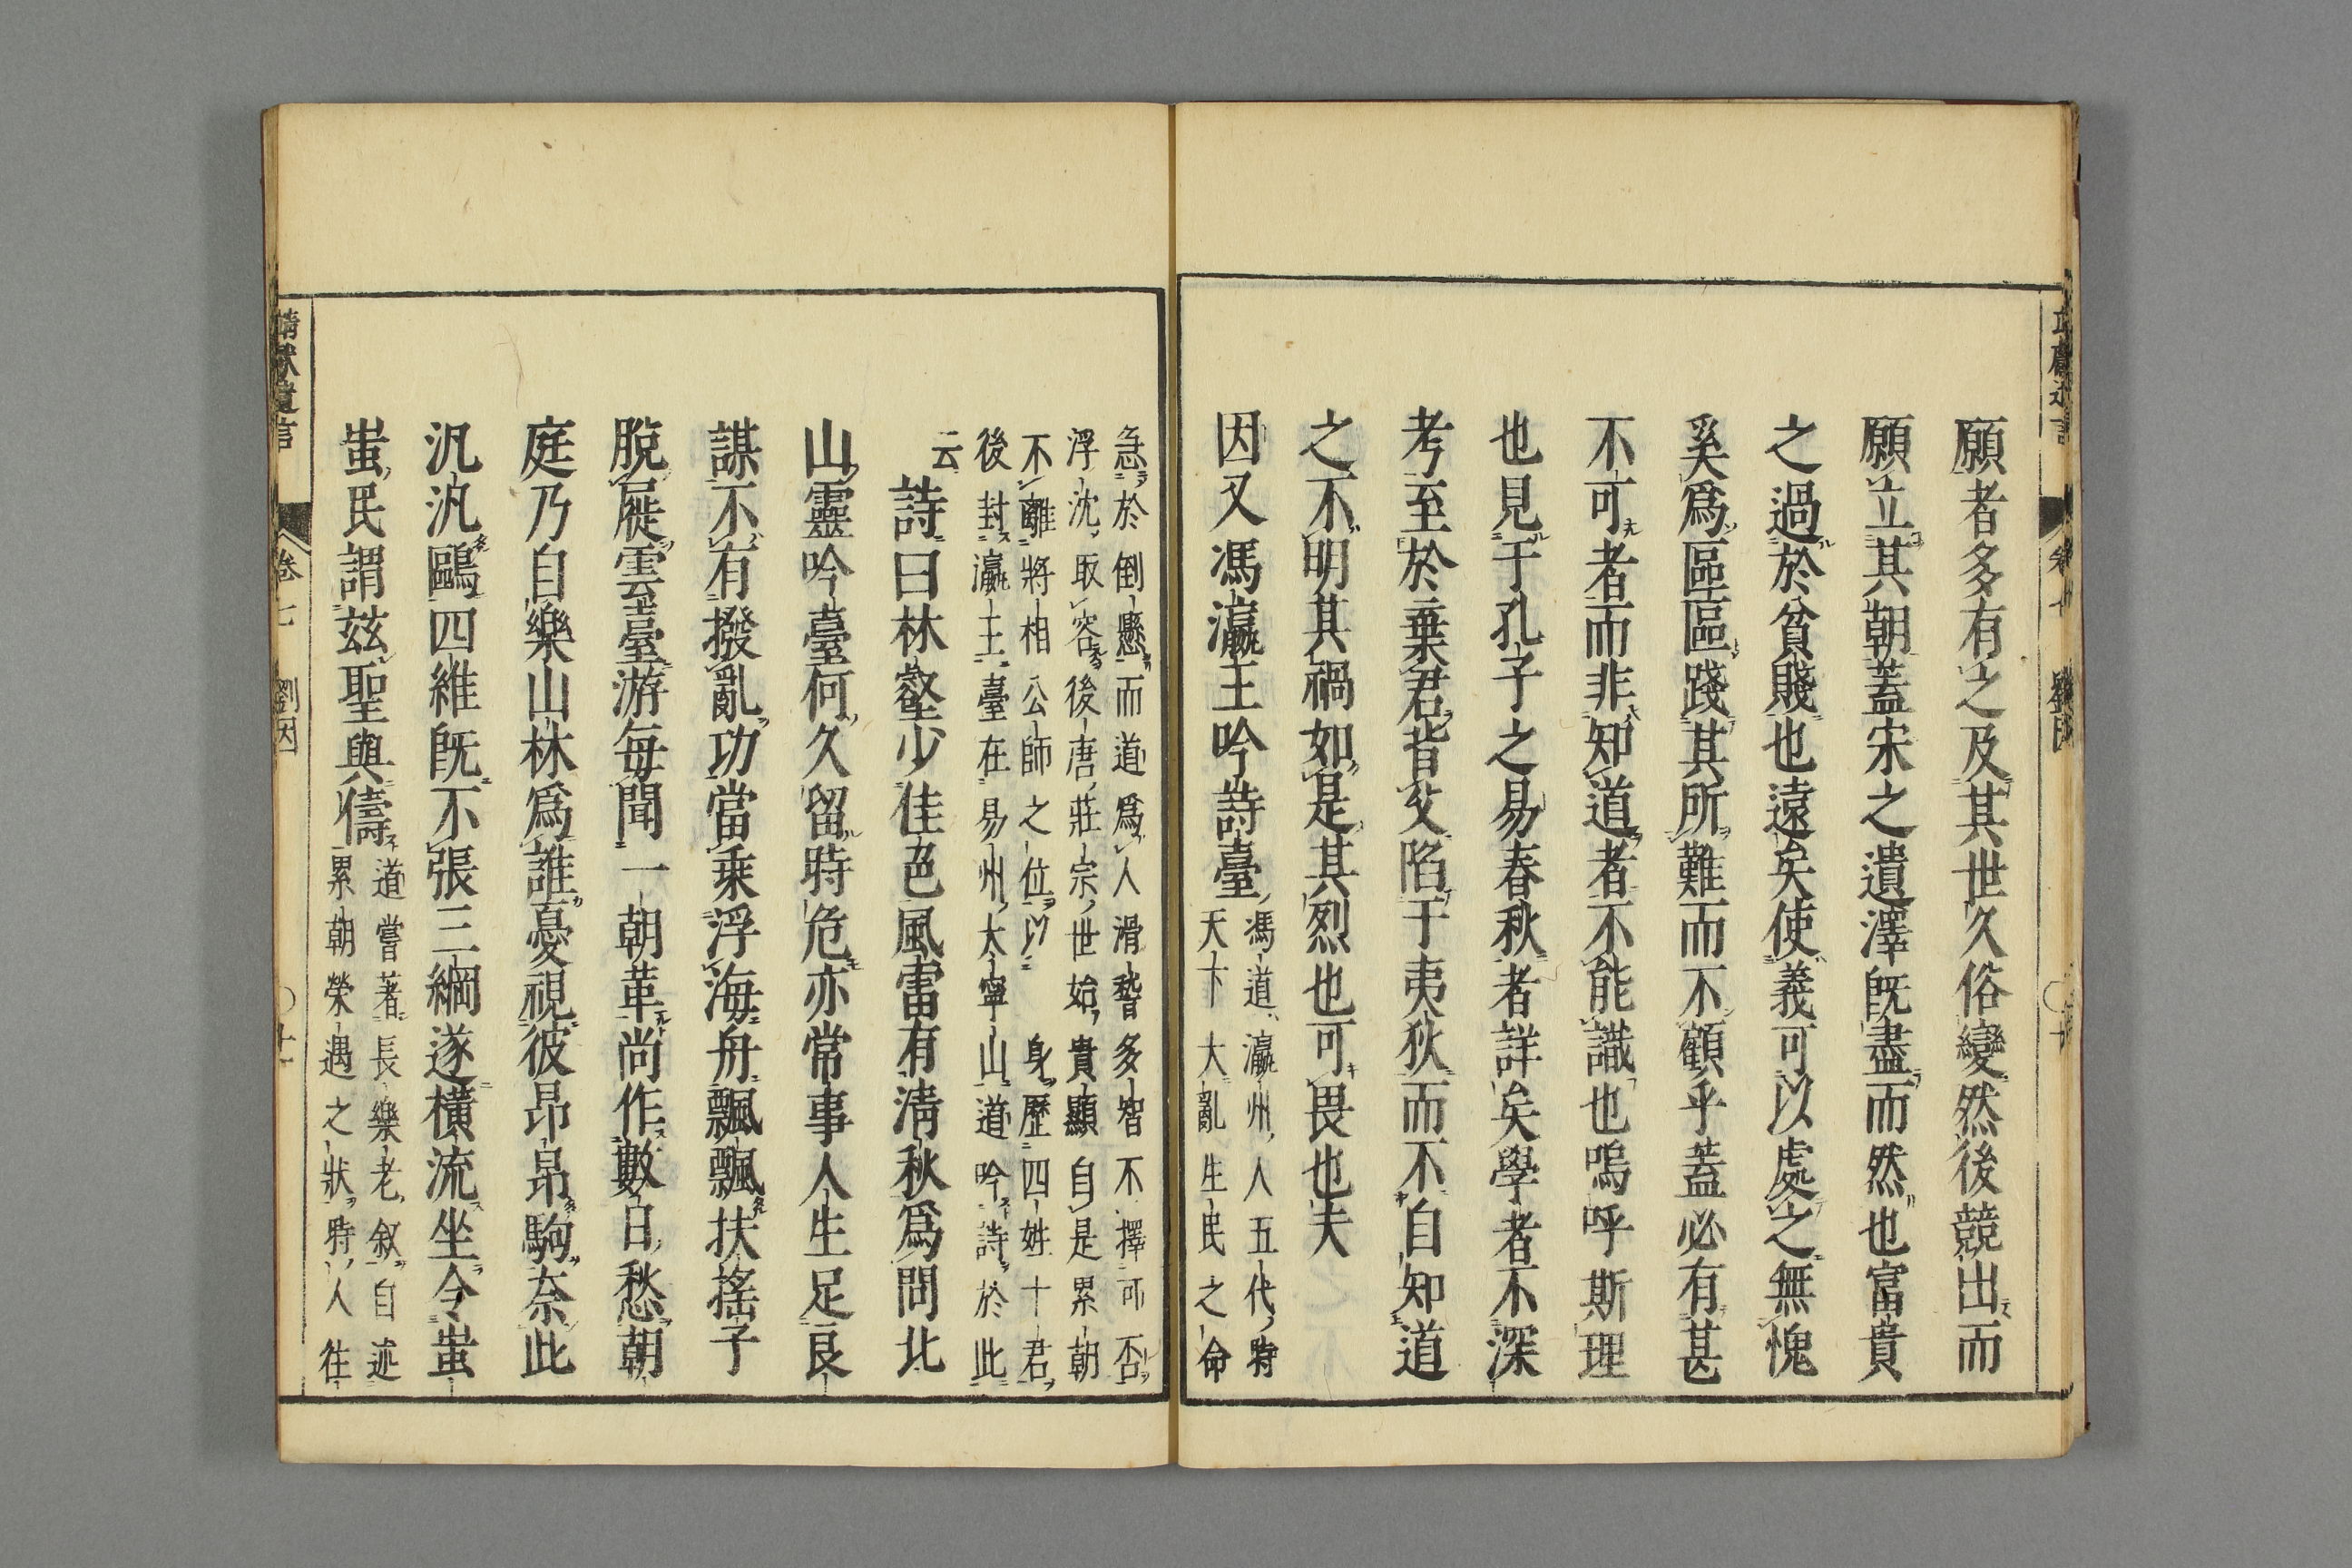 願者多有之及其世久俗變然後競出而
願立其朝蓋宋之遺澤既盡而然也富貴
之過於貧賤也遠矣使義可以處之無愧
奚爲區區踐其所難而不顧乎蓋必有甚
不可者而非知道者不能識也嗚呼斯理
也見于孔子之易春秋者詳矣學者不深
考至於棄君背父陷于夷狄而不自知道
之不明其禍如是其烈也可畏也夫
因又馮瀛王吟詩臺
馮道瀛州人五代時
天下大亂生民之命
急於倒懸而道爲人滑稽多智不擇可否
浮沈取容後唐莊宗世始貴顯自是累朝
不離將相公師之位以身歷四姓十君
後封瀛王臺在易州大寧山道吟詩於此
云
詩曰林壑少佳色風雷有清秋爲問北
山靈吟臺何久留時危亦常事人生足良
謀不有撥亂功當乘浮海舟飄飄扶搖子
脫屣雲臺游每聞一朝革尚作數日愁朝
庭乃自樂山林爲誰憂視彼昂昂駒奈此
汎汎鷗四維既不張三綱遂橫流坐令蚩
蚩民謂茲聖與儔
道嘗著長樂老叙自述
累朝榮遇之狀時人往
靖献遺言
卷七
劉因
十一